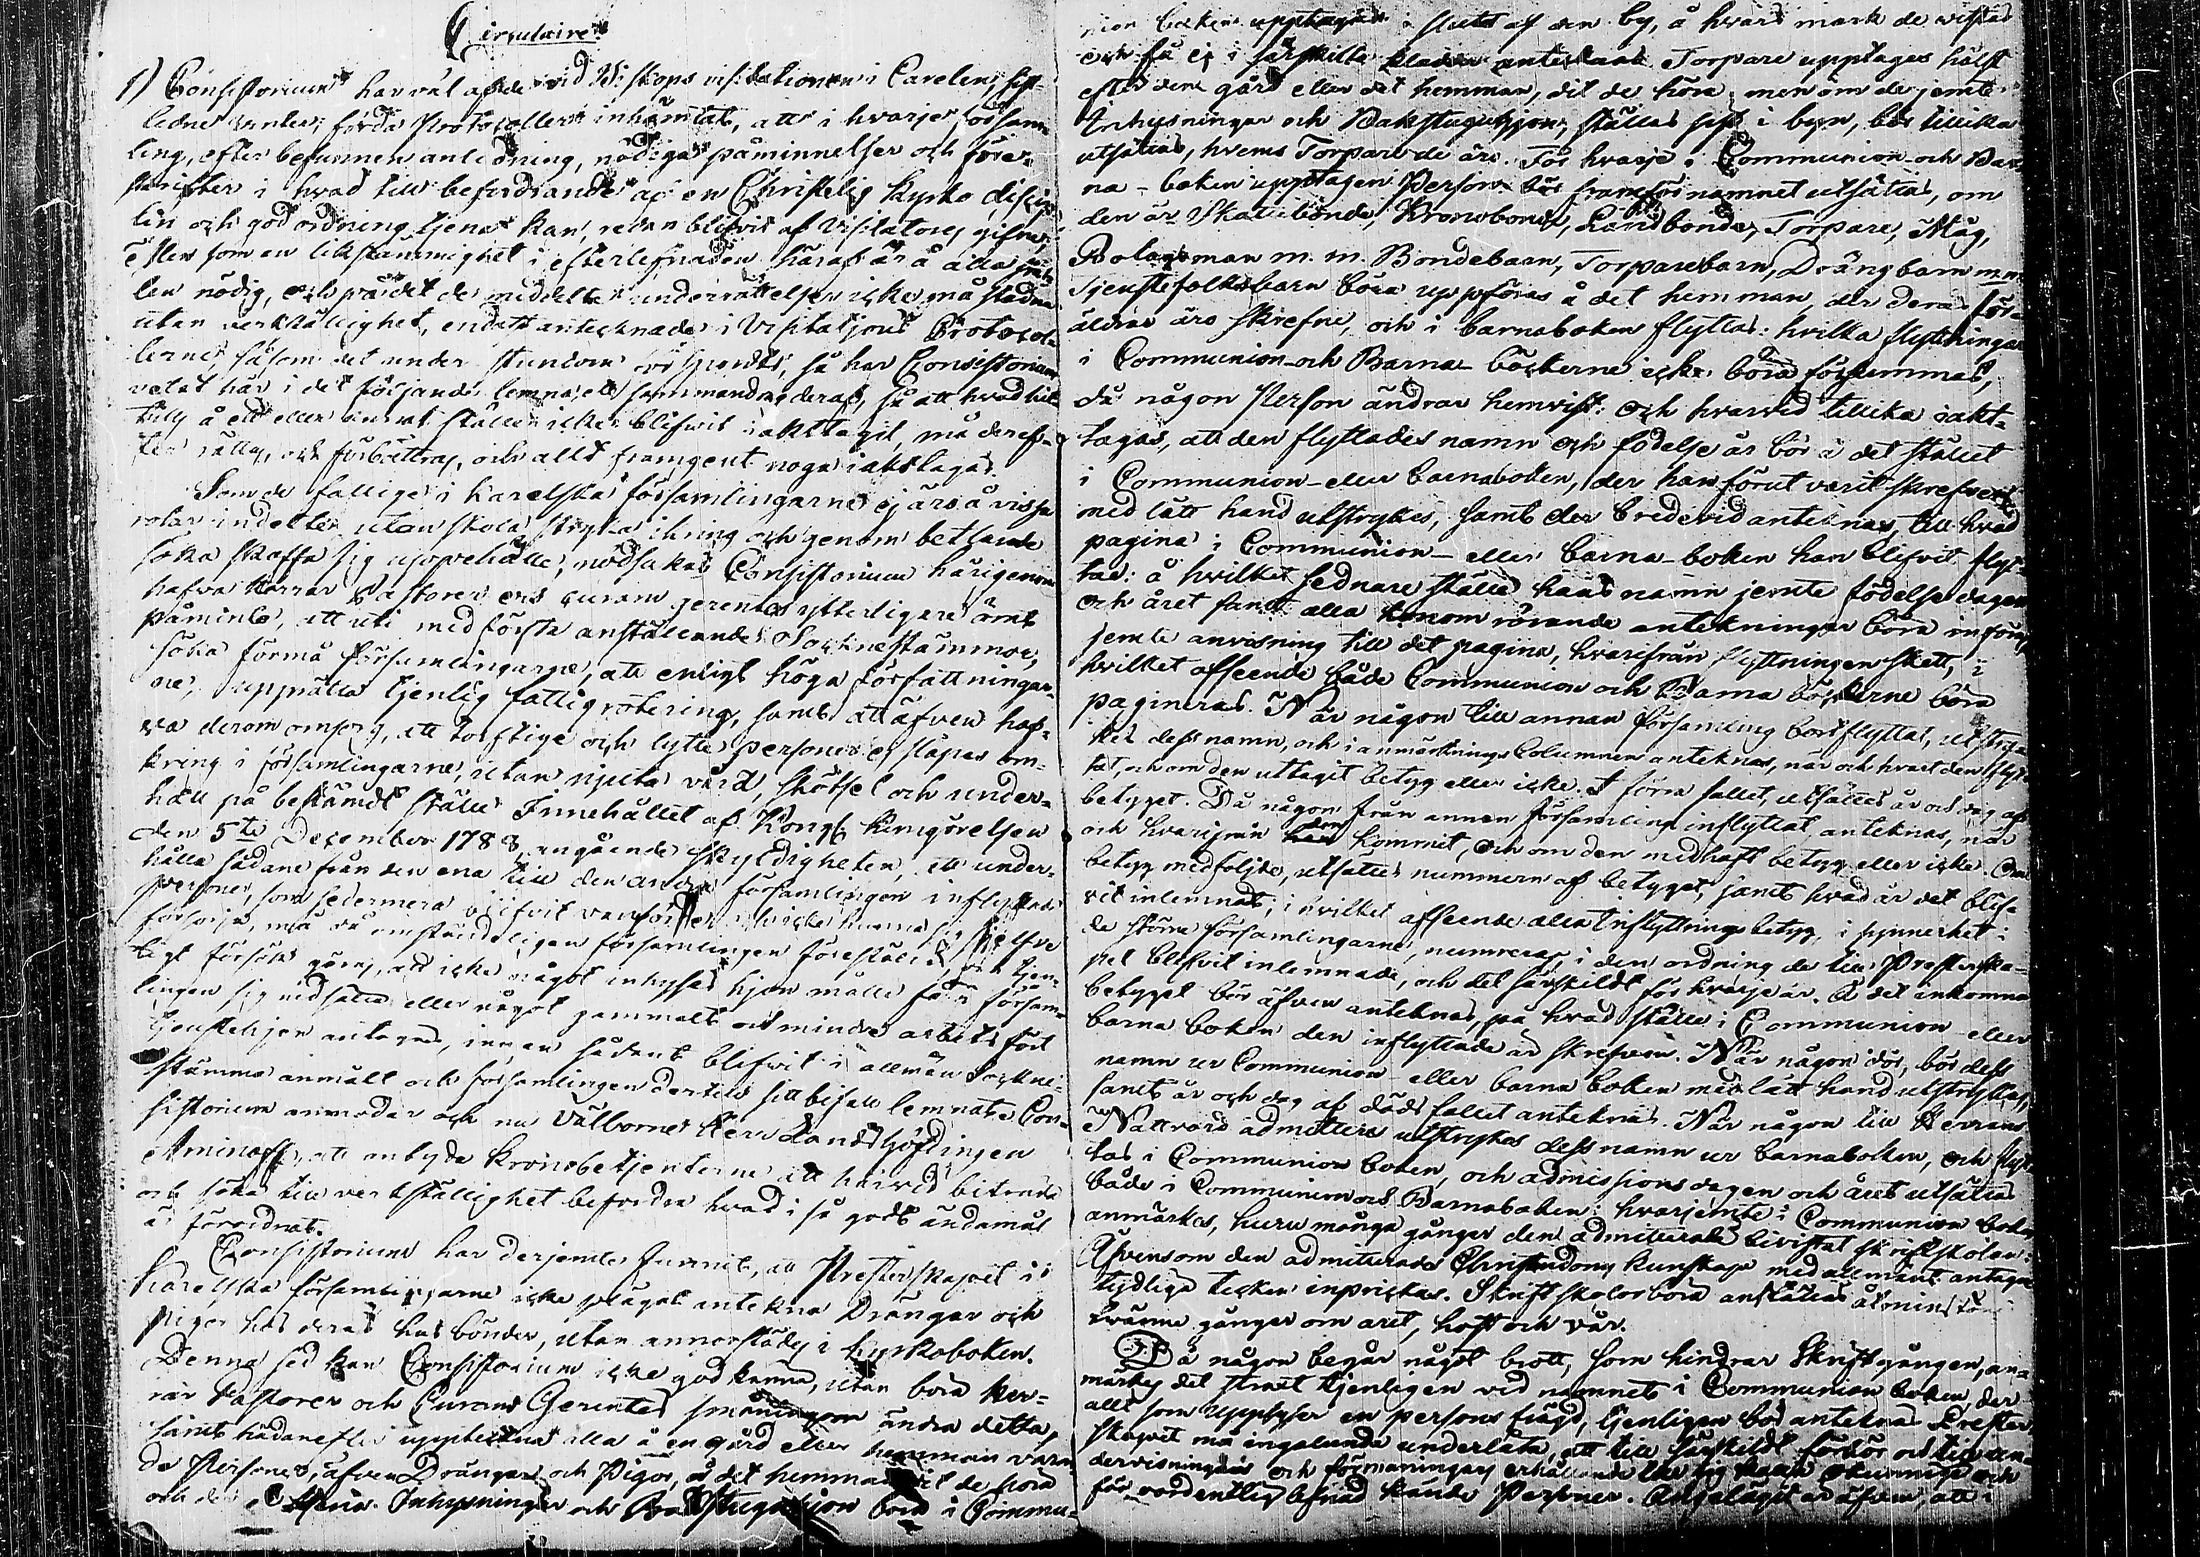 Circulaire
1) Consistorium har väl af de vid Biskops visitationen i Carelen, sist-
ledne vinter, förda Protocoller inhämtat, att i hvarje försam-
ling, efter befunnen anledning, nödiga påminnelser och före-
skrifter i hvad till befordrande af en Christelig kyrko discip-
lin och god ordning tjena kan, redan blifvit af Visitator gifne;
Men som en likstämmighet i efterlefnaden häraf är å alla stäl-
len nödig, och på det de meddelte underrättelser icke må stadna
utan verkställighet, endast antecknade i Visitations Protocol-
lerne, såsom det under stundom försports, så har Consistorium
velat här i det följande lemna ett sammandrag deraf, så att hvad hit-
tills å ett eller annat ställe icke blifvit iakttagit, må deref-
ter rättas och förbättras, och allt framgent noga iakttagas.
Som de fattige i Karelska församlingarne ej äro å vissa
rotar indelte, utan skola stryka ikring och genom bettlande
söka skaffa sig uppehälle, nödsakas Consistorium härigenom
hafva Herrar Pastorer och curam gerentes ytterligare ömt
påminte, att uti med första anställande Socknestämmor,
söka förmå församlingarne, att enligt höga författningar-
ne, upprätta tjenlig fattigrotering, samt att äfven haf-
va derom omsorg, att torftige och lytte personer ej släpas om-
kring i församlingarne, utan njuta vård, skötsel och under-
håll på bestämdt ställe Innehållet af Kongl. Kungörelsen
den 5te December 1788, angående skyldigheten, att under-
hålla sådane från den ena till den andra församlingen inflyttade
personer, som sedermera blifvit vanföra och icke kunna sig sjelfve
försörja, må då omständeligen församlingen föreställas, och tjen-
ligt försök göras, att icke något inhyses hjon måtte få i försam-
lingen sig nedsätta eller något gammalt och mindre arbetsfört
tjenstehjon antagas, innan sådant blifvit i allmän Sockne-
stämma anmält och församlingen dertill sitt bifall lemnat. Con-
sistorium anmodar och nu Välborne Herr Landshöfdingen
Aminoff, att anbyda kronobetjenterne att härvid biträda
och söka till verkställighet befordra hvad i så godt ändamål
är förordnat.
Consistorium har derjemte funnit, att Presterskapet i
Karelska församlingarne icke plägat antekna Drängar och
Pigor hos deras husbönder, utan annorstädes i kyrkoboken.
Denna sed kan Consistorium icke godkänna, utan böra Her-
rar Pastorer och Curam Gerentes småningom ändra detta,
samt hädanefter uppteckna alla å en gård eller hemman varan-
de Personer, äfven Drängar och Pigor, å det hemman dit de höra
och der tjena. Inhysningar och Bakstuguhjon böra i Commu-
nion boken upptagas i slutet af den by, å hvars mark de vistas
och få ej i särskilte klasser anteknas. Torpare upptages hälst
efter den gård eller det hemman, dit de höra, men om de jemte
Inhysningar och Bakstuguhjon ställas sist i byn, bör tillika
utsättas, hvems Torpare de äro. För hvarje i Communion- och Bar-
na-boken upptagen Person bör framför namnet utsättas, om
den är Skattebonde, Kronobonde, Landbonde, Torpare, Måg,
Bolagsman m. m. Bondebarn, Torparebarn, Drängbarn m. m.
Tjenstefolksbarn böra uppföras å det hemman, der deras för-
äldrar äro skrefne, och i barnaboken flyttas: hvilka flyttningar
i Communion- och Barna-böckerne icke böra försummas,
då någon Person ändrar hemvist: och hvarvid tillika iakt-
tages, att den flyttades namn och födelse år bör å det stället
i Communion- eller barnaboken, der han förut varit skrefven
med lätt hand utstrykes, samt der bredevid anteknas, till hvad
pagina i Communion- eller barna-boken han blifvit flyt-
tad: å hvilket sednare ställe hans namn jemte födelse dagen
och året samt alla honom rörande antekningar böra införas
jemte anvisning till det pagina, hvarifrån flyttningen skett, i
hvilket afseende både Communion och Barna böckerne böra
pagineras. När någon till annan församling bortflyttat, utstry-
kes dess namn, och i anmärknings Columnen anteknas, när och hvart den flyt-
tat, och om den uttagit betyg eller icke. I förra fallet, utsättes år och dag af
betyget. Då någon från annan församling inflyttat, anteknas, när
och hvarifrån den kommit, och om den medhaft betyg eller icke. Om
betyg medföljde, utsättes nummern af betyget, samt hvad år det blif-
vit inlemnat; i hvilket afseende alla Inflyttnings betyg, i synnerhet i
de större församlingarne, numreras, i den ordning de till Presterska-
pet blifvit inlemnade, och det särskildt för hvarje år. Å det inkomna
betyget bör äfven anteknas, på hvad ställe i Communion- eller
barna boken den inflyttade är skrefven. När någon dör, bör dess
namn ur Communion eller barna boken med lätt hand utstrykas,
samt år och dag af dödsfallet anteknas. När någon till Herrans
Nattvard admitteras utstrykes dess namn ur barnaboken, och flyt-
tas i Communion boken, och admissions dagen och året utsättas
både i Communion och Barnaboken: hvarjemte i Communion boken
anmärkes, huru många gånger den admitterade bevistat skriftskolan:
Äfvensom den admitterades Christendoms kunskap med allmänt antagne
tydliga tecken inprickas. Skriftskolor böra anställas åtminstone
tvänne gånger om året, höst och vår.
Då någon begår något brott, som hindrar Skriftgången, an-
märkes det strax tjenligen vid namnet i Communion boken, der
allt som upplyser en persons frägd, tjenligen bör anteknas. Prester-
skapet må ingalunda underlåta, att till särskildt förhör och till un-
dervisningars och förmaningars erhållande till sig kalla okunnige och
för vordentlig lefnad kände Personer. Angeläget är äfven, att i